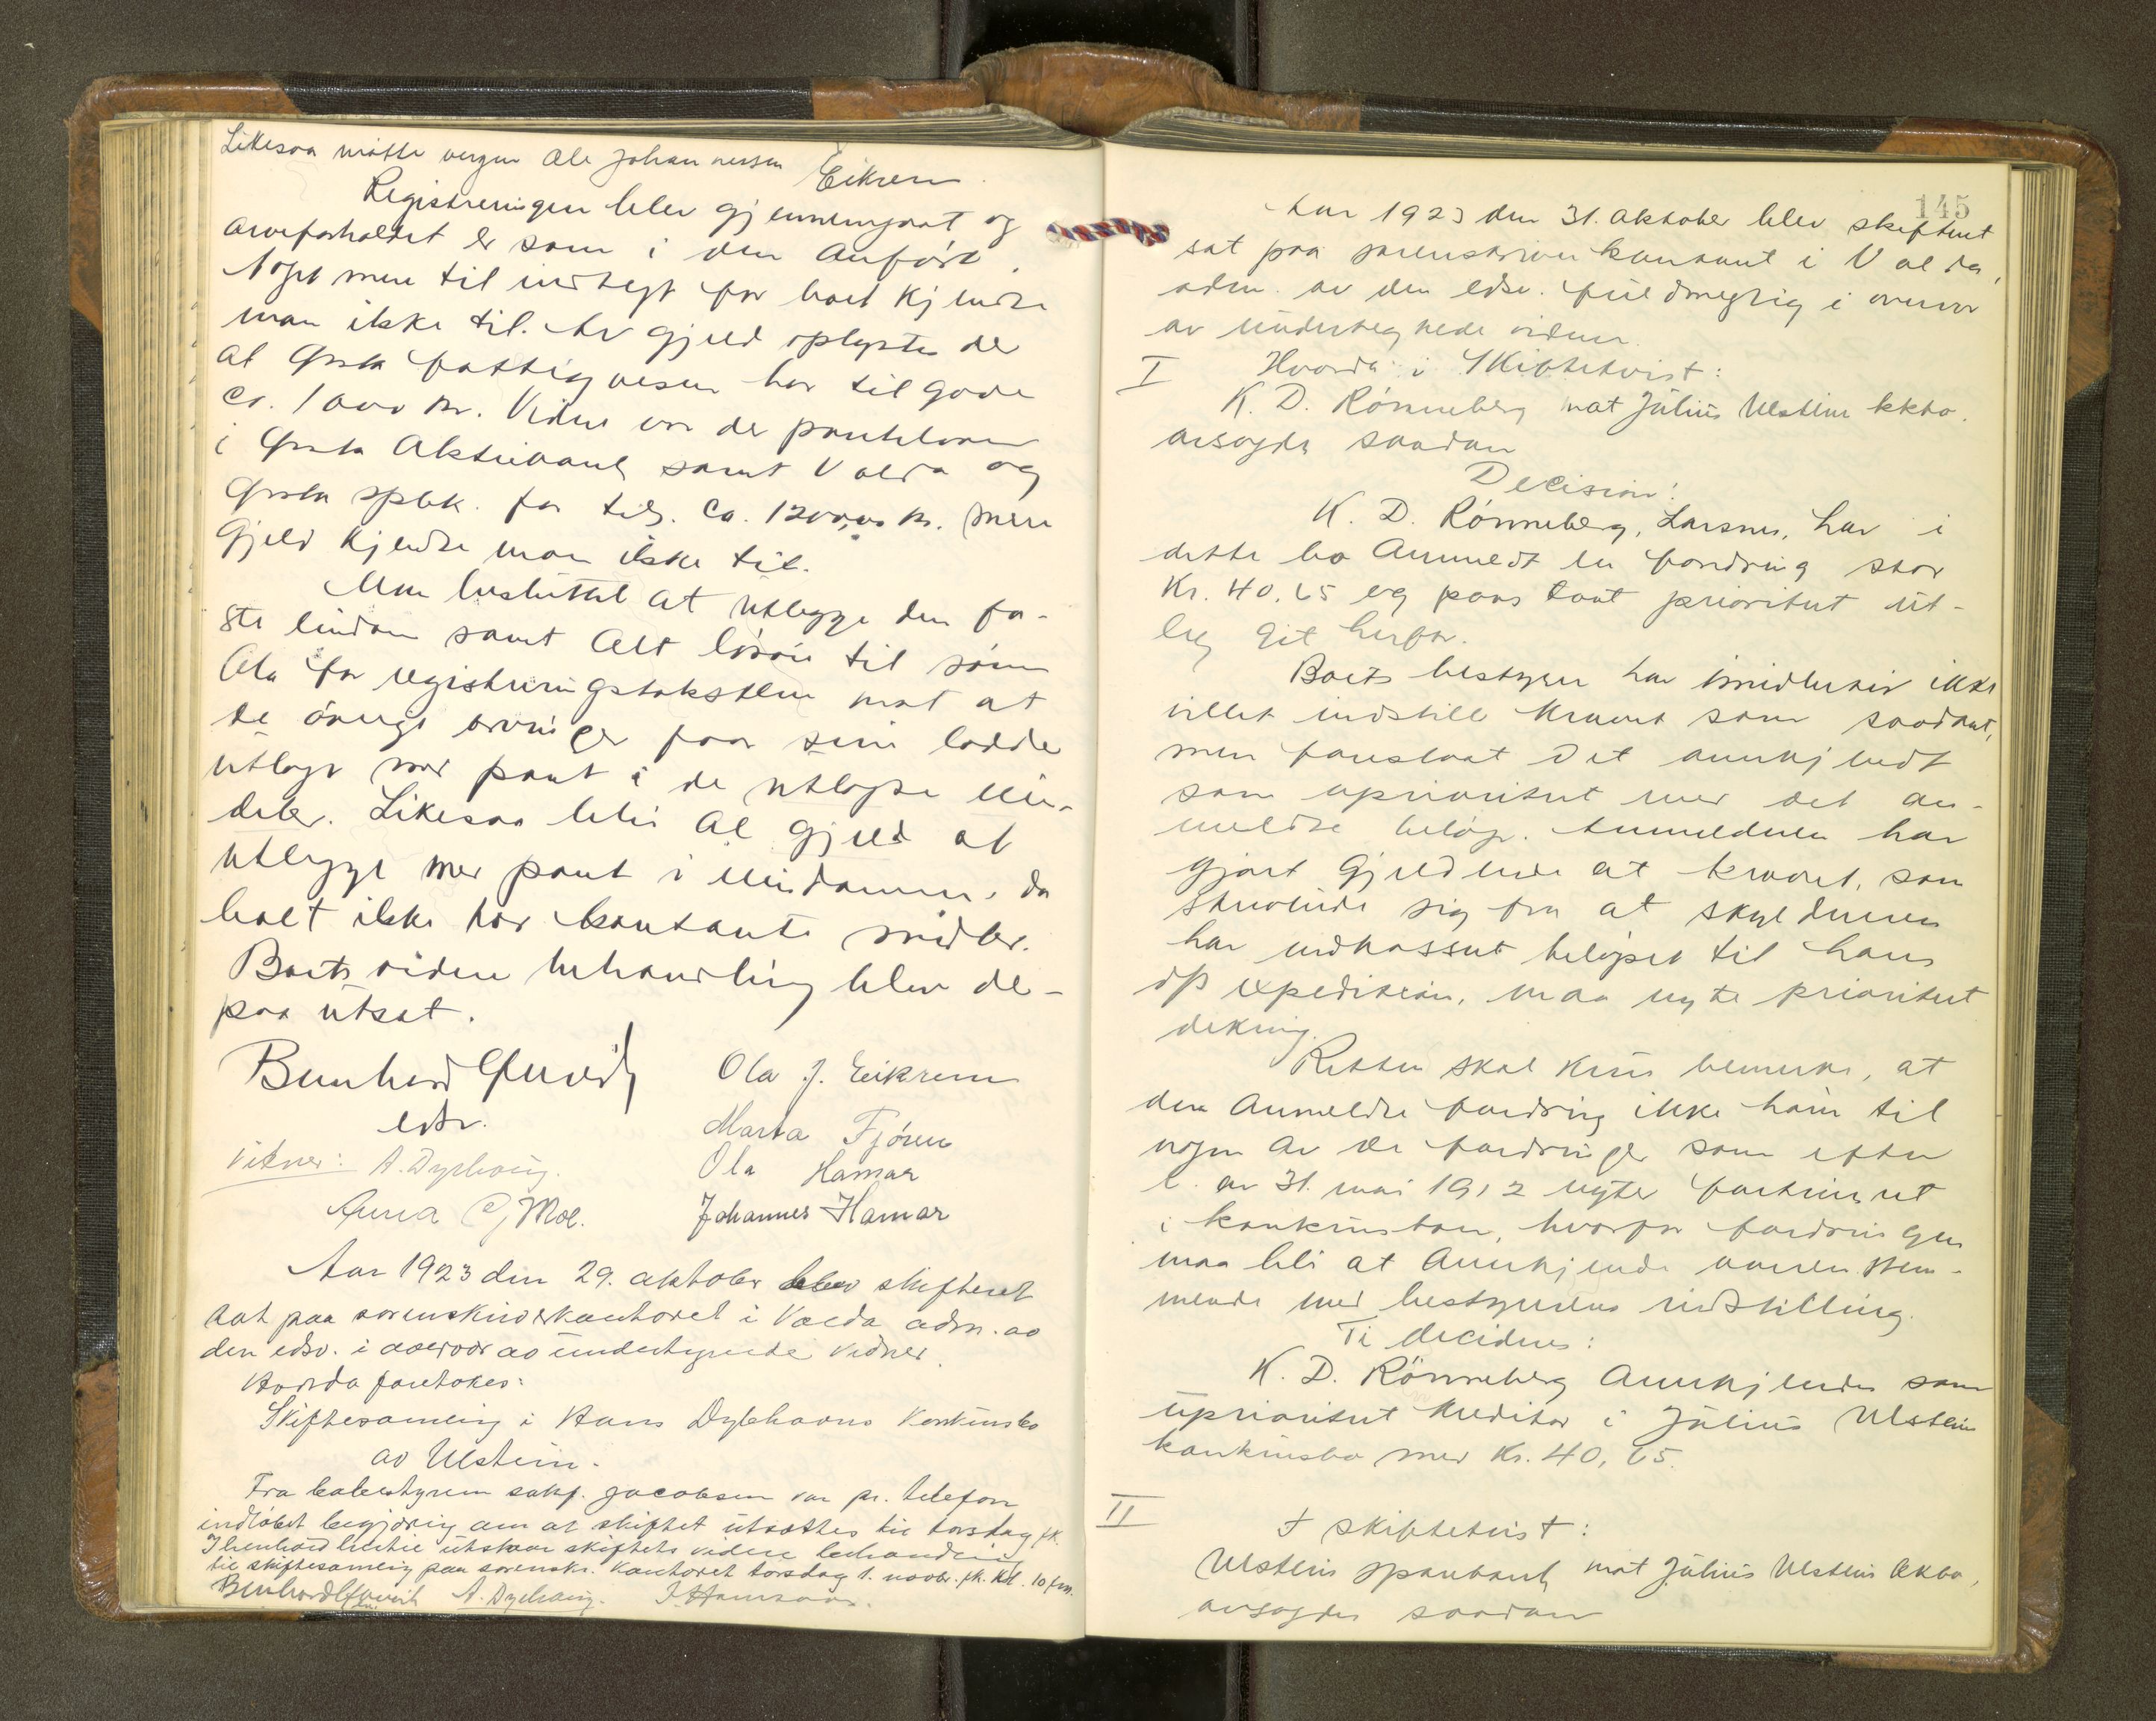 Likesaa møtte vergen Ole Johannessen
Eikrem.
Registreringen blev gjennemgaat og
arveforholdet er som i den anført.
Noget mere til indtegt for boet kjendte
man ikke til. Av gjeld oplystes det
at Ørsta fattigvesen har tilgode
ca. 1000 kr. Videre er der pantelaan
i Ørsta Aktiebank samt Volda og
Ørsta spbk. for tils. ca. 1200,00 kr. Mere
gjeld kjendte man ikke til.
Man besluttet at utlegge den fa-
ste eiendom samt alt løsøre til sønnen
Ola for registreringstaksten mot at
de øvrige arvinger faar sine lodder
utlagt med pant i de utlagte eien-
deler. Likesaa blir al gjeld at
utlegge med pant i eiendommen, da
boet ikke har kontante midler.
Boets videre behandling blev der-
paa utsat.
Bernhard
Ola J. Eikrem
edsv.
Marta Fjören
Vidner: A. Dyrhaug.
Ola Hamar
Anna Moe.
Johannes Hamar
Aar 1923 den 29. oktober blev skifteret
sat paa sorenskriverkontoret i Volda adm. av
den edsv. i overvær av undertegnede vidner.
Hvorda foretokes:
Skiftesamling i Hans Konkursbo
av Ulstein.
Fra bobestyreren sakf. Jacobsen var pr. telefon
indløbet begjæring om at skiftet utsættes til torsdag fk.
I henhold hertil utstaar skiftets videre behandling
til skiftesamling paa sorenskr. kontoret torsdag 1. novbr. fk. kl. 10 fm.
Bernhard A. Dyrhaug.
145
Aar 1923 den 31. oktober blev skifteret
sat paa sorenskriverkontoret i Volda,
adm. av den edsv. fuldmegtig i overvær
av undertegnede vidner.
I Hvorda i Skiftetvist:
K. D. Rønneberg mot Julius Ulstein kkbo.
avsagdes saadan
Decision:
K. D. Rønneberg, Larsnes, har i
dette bo anmeldt en fordring stor
Kr. 40,65 og paastaat prioritert ut-
leg git herfor.
Boets bestyrer har imidlertid ikke
villet indstille kravet som saadant,
men foreslaat det anerkjendt
som uprioritert med det an-
meldte beløp. Anmelderen har
gjort gjeldende at kravet, som
skriver sig fra at skyldneren
har indkassert beløpet til hans
dp expedition, maa nyte prioritert
dekning.
Retten skal kun bemerke, at
den anmeldte fordring ikke hører til
nogen av de fordringer som efter
l. av 31. mai 1912 nyter fortrinsret
i konkursboer, hvorfor fordringen
maa bli at anerkjende overenstem-
mende med bestyrerens indstilling.
Ti decideres:
K. D. Rønneberg anerkjendes som
uprioritert kreditor i Julius Ulstein
konkursbo med Kr. 40,65.
II I skiftetvist:
Ulstein sparebank mot Julius Ulstein kkbo,
avsagdes saadan